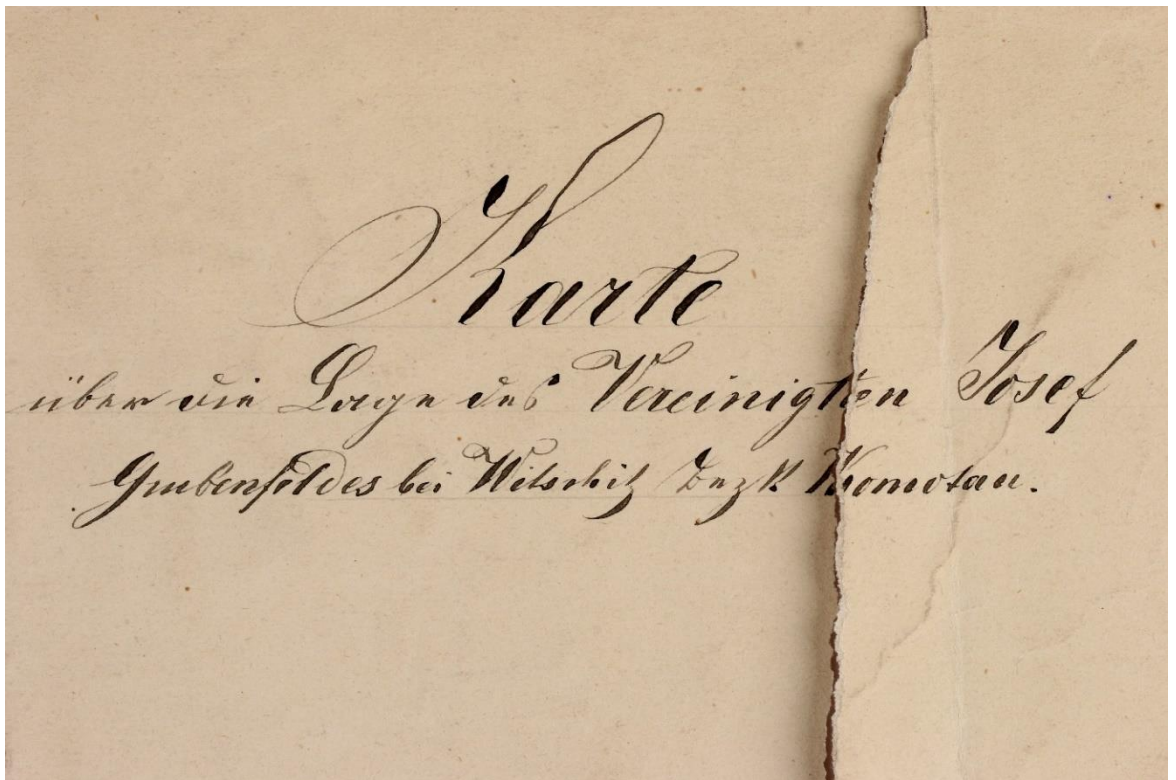 Karte
über die Lage des Vereinigten Josef
Grubenfeldes bei Witschitz Bezk Komotau.